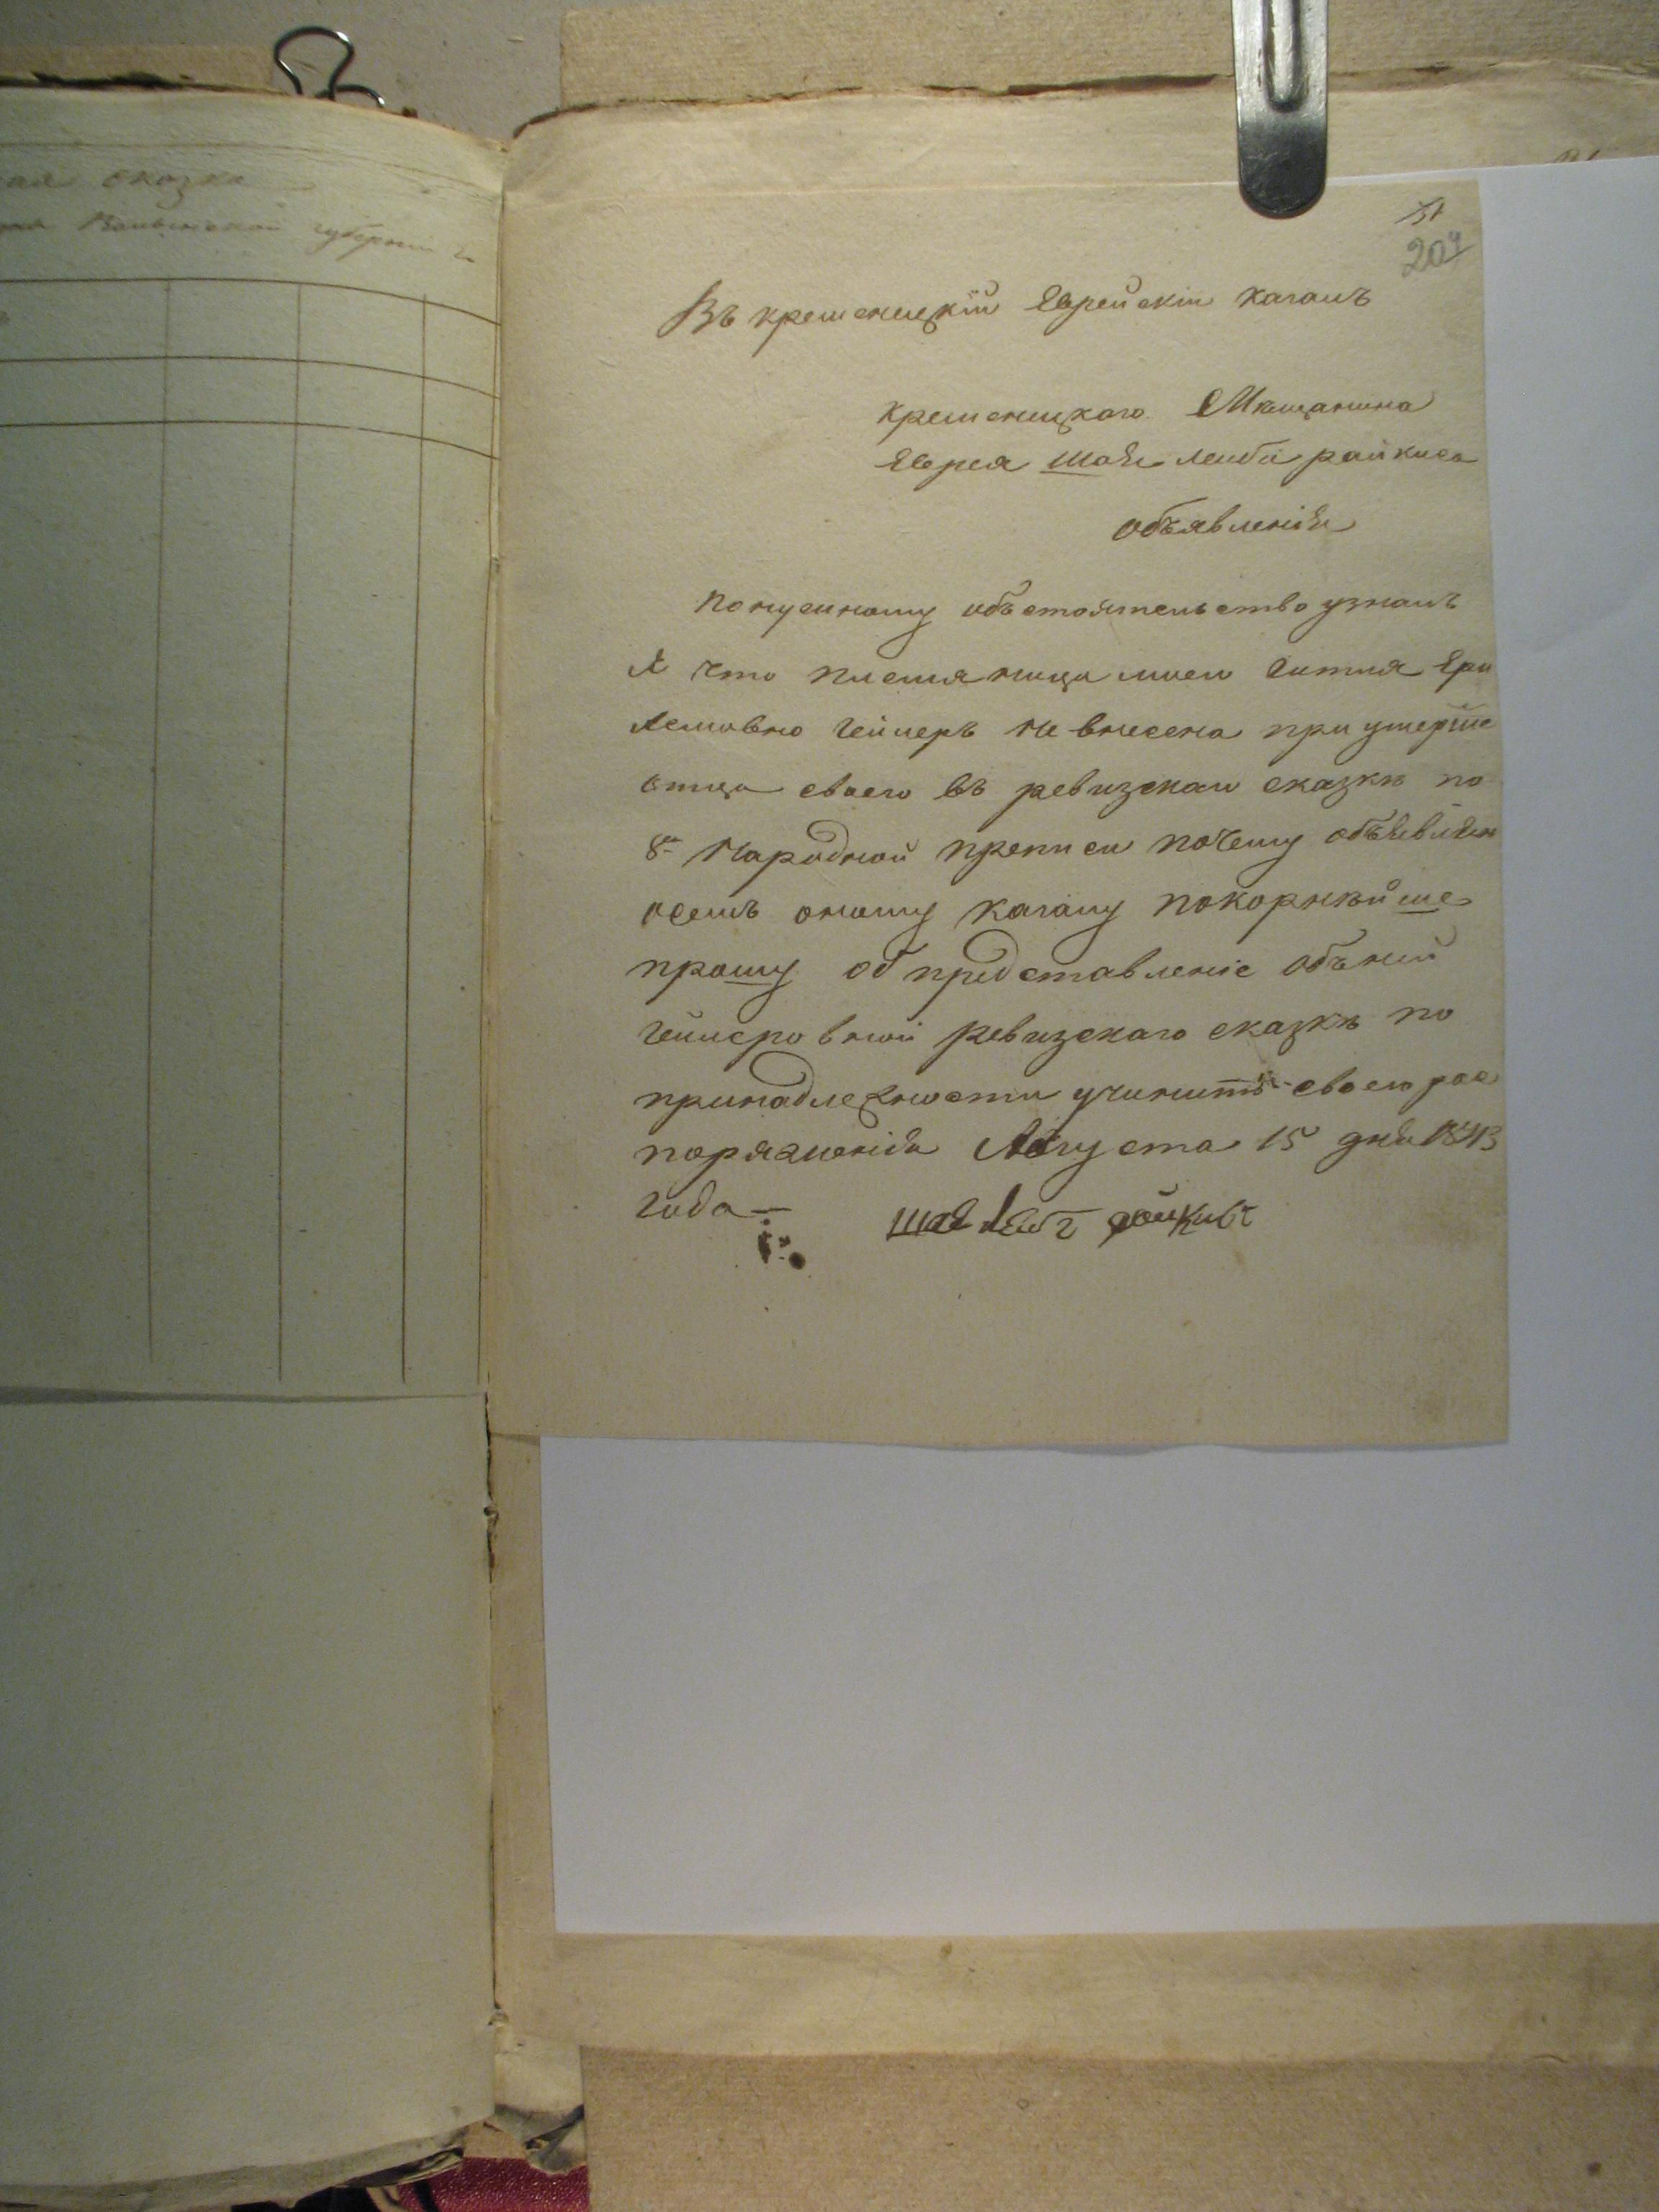 кая сказка
Волынской губерніи
51
209
Въ кременецкій Еврейскій кагалъ
кременецкаго Мѣщанина
Еврея Шаѣ лейба райкиса
объявленіѣ
по нуспному объстоятельство узналъ
Я что племяница моего Ерш
лемовно геймеръ не внесена при умерше
отца своего въ ревизскаю сказкѣ по
8й Народной преписи почему объѣвлѣя
осемъ оному кагалу покорнѣйше
прошу об представленіе объней
геймеровной ревизскаго сказкѣ по
принадлежности учинить своего рас
поряженіѣ Августа 15 днѣ 1843
года
шаѣ лейб райкис